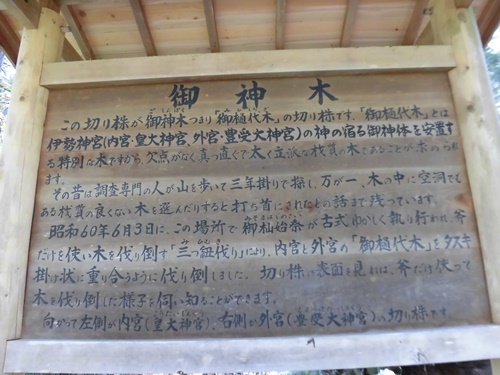 御神木
この切り株が御神木つまり「御樋代木」の切り株です。「御樋代木」とは
伊勢神宮(内宮・皇大神宮、外宮・豊受大神宮)の神の宿る御神体を安置す
る特別な木ですから、欠点がなく真っ直ぐで太く立派な材質の木であることが求められ
ます。
その昔は調査専門の人が山を歩いて三年掛りで探し、万が一、木の中に空洞でも
ある材質の良くない木を選んだりすると打ち首にされたとの話まで残っています。
昭和60年6月3日に、この場所で御杣始祭が古式ゆかしく執り行われ、斧
だけを使い木を伐り倒す「三つ紐伐り」により、内宮と外宮の「御樋代木」をタスキ
掛け状に重り合うように伐り倒しました。切り株の表面を見れば、斧だけ使って
木を伐り倒した様子を伺い知ることができます。
向かって左側が内宮(皇大神宮)、右側が外宮(豊受大神宮)の切り株です